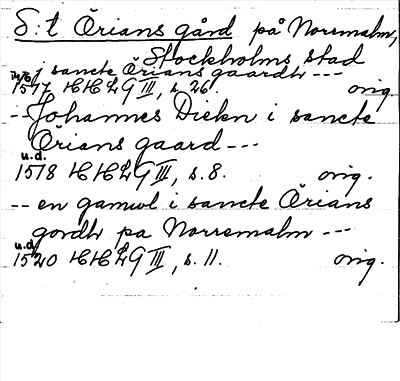 S:t Örians gård på Norrmalm,
Stockholms stad
i sancte Örians gaardh ---
1517 HH29 III, s. 26. orig.
-- Johannes Diekn i sancte
Örians gaard ---
u.d.
1518 HH29 III, s. 8. orig.
-- en gamwl i sancte Örians
gordh pa Norremalm ---
u.d.
1520 HH29 III, s. 11. orig.